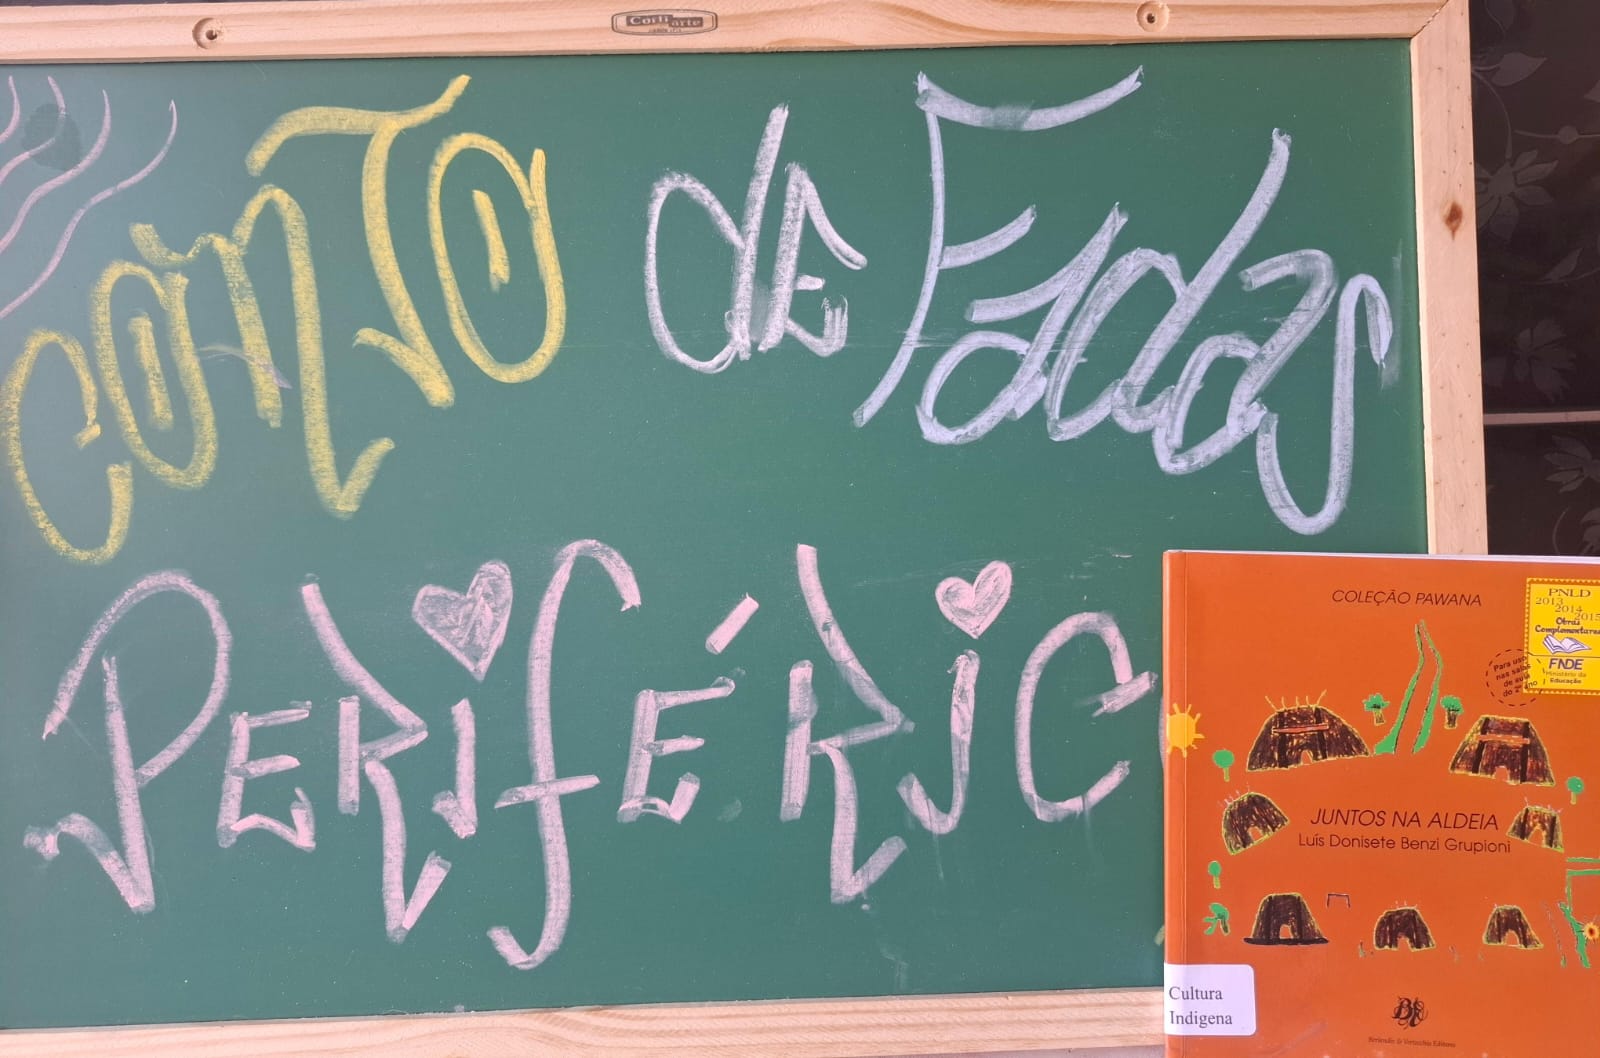 Corti arte
CONTO de Fadas
PERIFÉRIC
COLEÇÃO PAWANA
PNLD
2013
2014
2015
Obras
Complementares
FNDE
Ministério da
Educação
Para uso
nas salas
de aula
do 2º ano
JUNTOS NA ALDEIA
Luís Donisete Benzi Grupioni
Cultura
Indigena
Berlendis & Vertecchia Editores